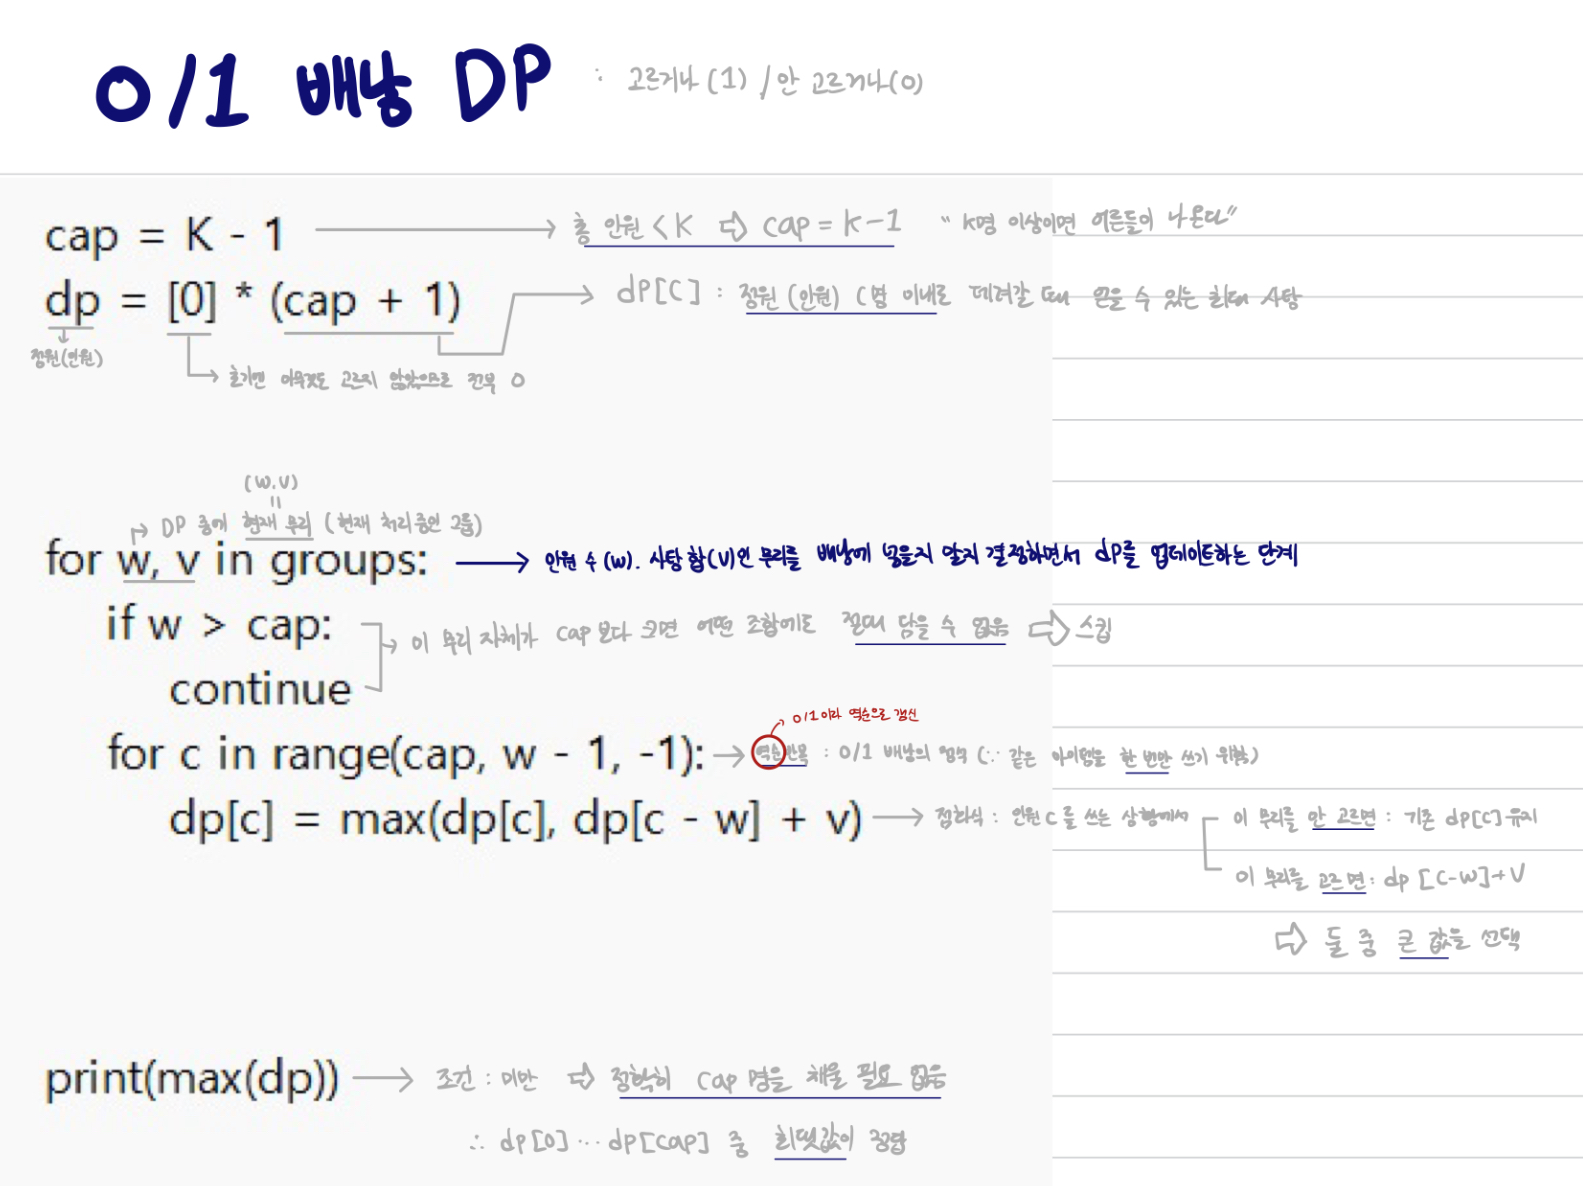 0/1 배낭 DP : 고르거나 (1) / 안 고르거나 (0)
cap = K - 1 → 총 인원 < K ⇨ cap = K-1 "K명 이상이면 어른들이 나온다"
dp = [0] * (cap + 1) → dp[c] : 정원 (인원) c명 이내로 데려갈 때 얻을 수 있는 최대 사탕
정원(인원)
→ 초기엔 아무것도 고르지 않았으므로 전부 0
(w.v)
=
→ DP 중에 현재 무리 (현재 처리중인 그룹)
for w, v in groups: → 인원 수 (w). 사탕 합(v)인 무리를 배낭에 넣을지 말지 결정하면서 dp를 업데이트하는 단계
if w > cap: → 이 무리 자체가 cap보다 크면 어떤 조합에도 절대 담을 수 없음 ⇨ 스킵
continue
→ 0/1이라 역순으로 갱신
for c in range(cap, w - 1, -1): → 역순반복 : 0/1 배낭의 정석 (∵ 같은 아이템을 한 번만 쓰기 위함)
dp[c] = max(dp[c], dp[c - w] + v) → 점화식 : 인원 c를 쓰는 상황에서 이 무리를 안 고르면 : 기존 dp[c] 유지
이 무리를 고르면 : dp [c-w]+v
⇨ 둘 중 큰 값을 선택
print(max(dp)) → 조건 : 미만 ⇨ 정확히 cap 명을 채울 필요 없음
∴ dp[0] ··· dp[cap] 중 최댓값이 정답